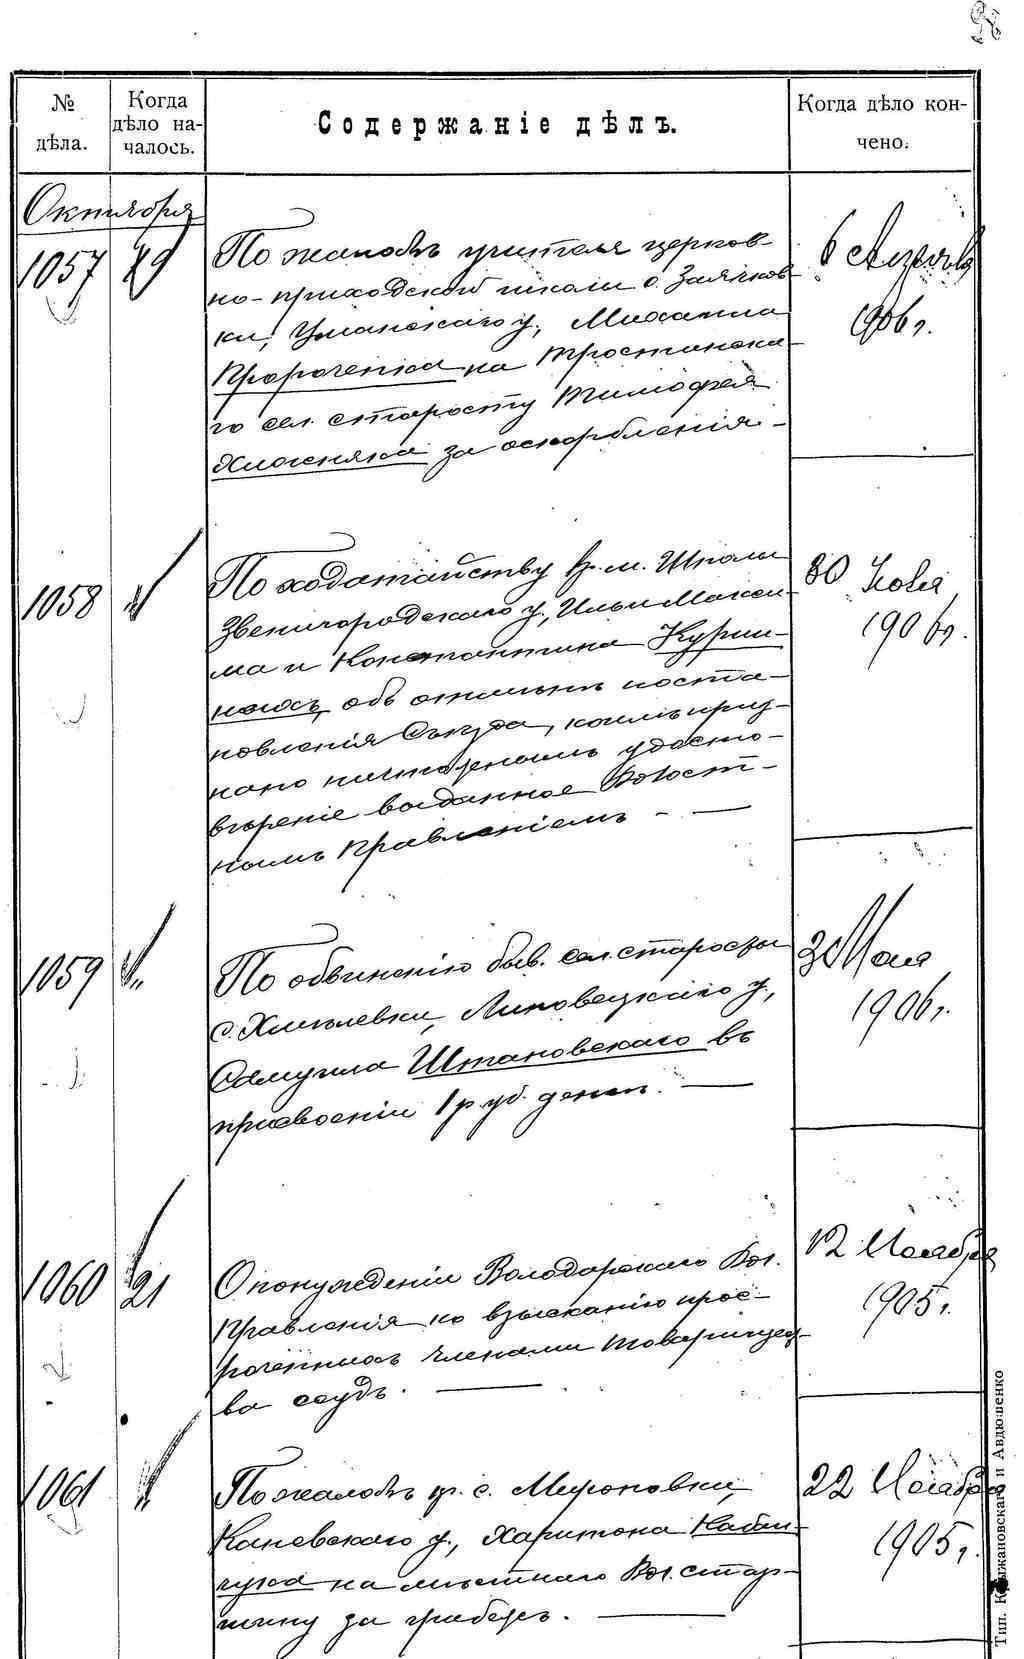 № дѣла.
Когда дѣло на-
чалось.
Содержаніе дѣлъ.
Когда дѣло кон-
чено.
Октября
1057
19
По жалобѣ учителя церков-
но-приходской школы с. Заячков-
ки, Уманскаго у., Михаила
Пророченка на Тростянска-
го сел. старосту Тимофея
за оскорбленія -
6
1906 г.
1058
"
По ходатайству кр. м. Шполы
Звенигородскаго у., Ильи Макси-
ма и Константина
объ отмѣнѣ поста-
новленія Съѣзда, коимъ приз-
нано ничтожнымъ удосто-
вѣреніе выданное Волост-
нымъ Правленіемъ - —
30
1906 г.
1059
"
По обвиненію быв. сел. старосты
с. Хмѣлевки, Липовецкаго у.,
Самуила Штановскаго въ
присвоеніи 1 руб. денег. —
Мая
1906 г.
1060
21
О понужденіи Володарскаго Вол.
Правленія ко взысканію прос-
роченныхъ членами товарищес-
ва ссудъ. —
12 Ноября
1905 г.
1061
"
По жалобѣ кр. с. Мироновки,
Каневскаго у., Харитона
на мѣстнаго Вол. стар-
шину за грабежъ. —
22 Ноября
1905 г.
Тип. Крыжановскаго и Авдюшенко